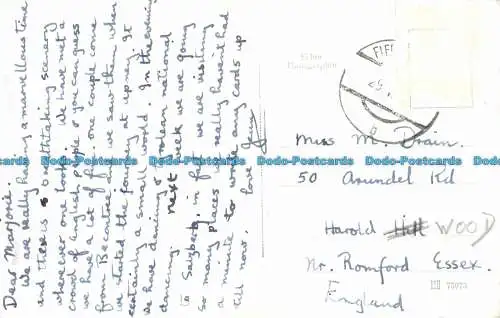 Dear Marjorie.
We are really having a marvellous time
and there is breathtaking scenery
wherever one looks. We have met a
crowd of English people so you can guess
we have a lot of fun. one couple come
from Becontree and we saw them when
we started the journey at upney. It
certainly a small world. In the evening
we have dancing & Tyrolean national
dancing. next week we are going
to Salzberg, in fact we are visiting
so many places we really havent had
a minute to write any cards up
till now. love
Echte
Photographie
FIE
Miss M. Drain.
50 Arundel Rd
Harold Hill WOOD
Nr. Romford Essex.
England
75073
Dodo-Postcards Dodo-Postcards Dodo-Postcards Dodo-Postcards